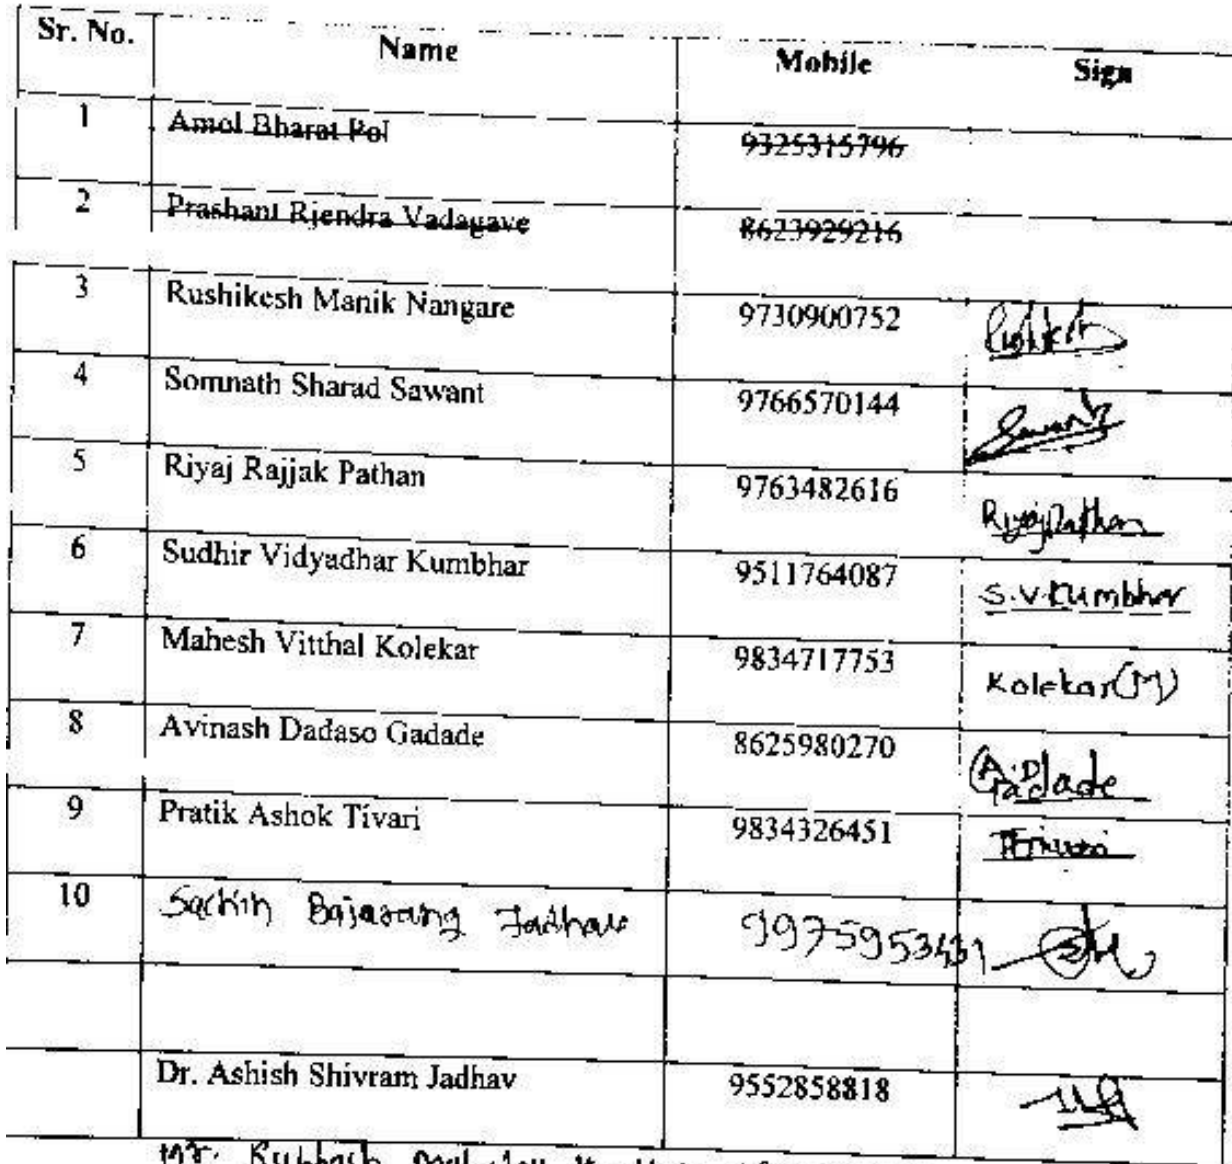 Sr. No. Name Mobile Sign
1 Amol Bharat Pol 9325315796
2 Prashant Rjendra Vadagave 8623929216
3 Rushikesh Manik Nangare 9730900752
4 Somnath Sharad Sawant 9766570144 Sawant
5 Riyaj Rajjak Pathan 9763482616 Riyaj Pathan
6 Sudhir Vidyadhar Kumbhar 9511764087 S.V.Kumbhar
7 Mahesh Vitthal Kolekar 9834717753 Kolekar(M)
8 Avinash Dadaso Gadade 8625980270
9 Pratik Ashok Tivari 9834326451
10 Sachin Bajarang Jadhav
Dr. Ashish Shivram Jadhav 9552858818
Mr.